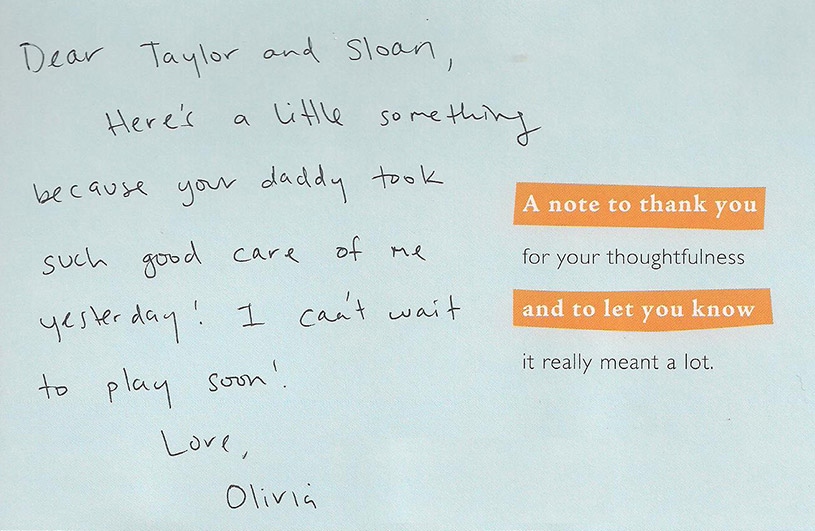 Dear Taylor and Sloan,
Here's a little something
because your daddy took
such good care of me
yesterday! I can't wait
to play soon!
Love,
Olivia
A note to thank you
for your thoughtfulness
and to let you know
it really meant a lot.